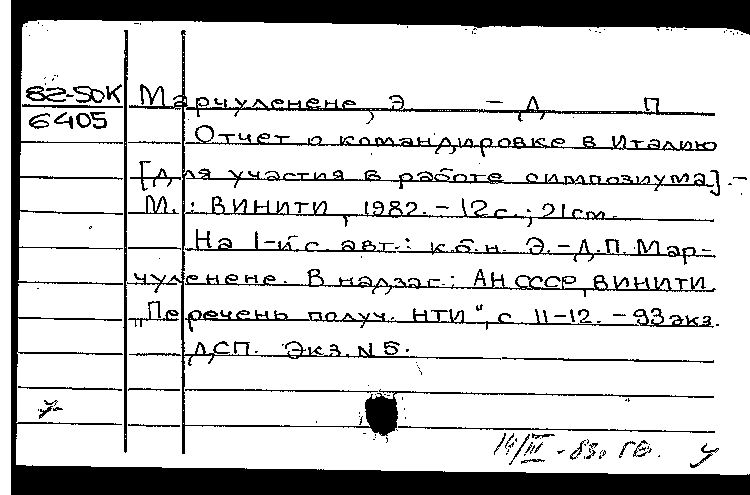 82-5ОК Марчуленене, Э. – Д. П
6405
Отчет о командировке в Италию
[для участия в работе симпозиума]. –
М.: ВИНИТИ, 1982. – 12 с.; 21 см.
На 1-й с. авт.: к.б.н. Э.-Д.П. Мар-
чуленене. В надзаг.: АН СССР, ВИНИТИ
„Перечень получ. НТИ", с 11-12. – 93 экз.
ДСП. Экз. N 5.
14/III - 83. ГФ. У